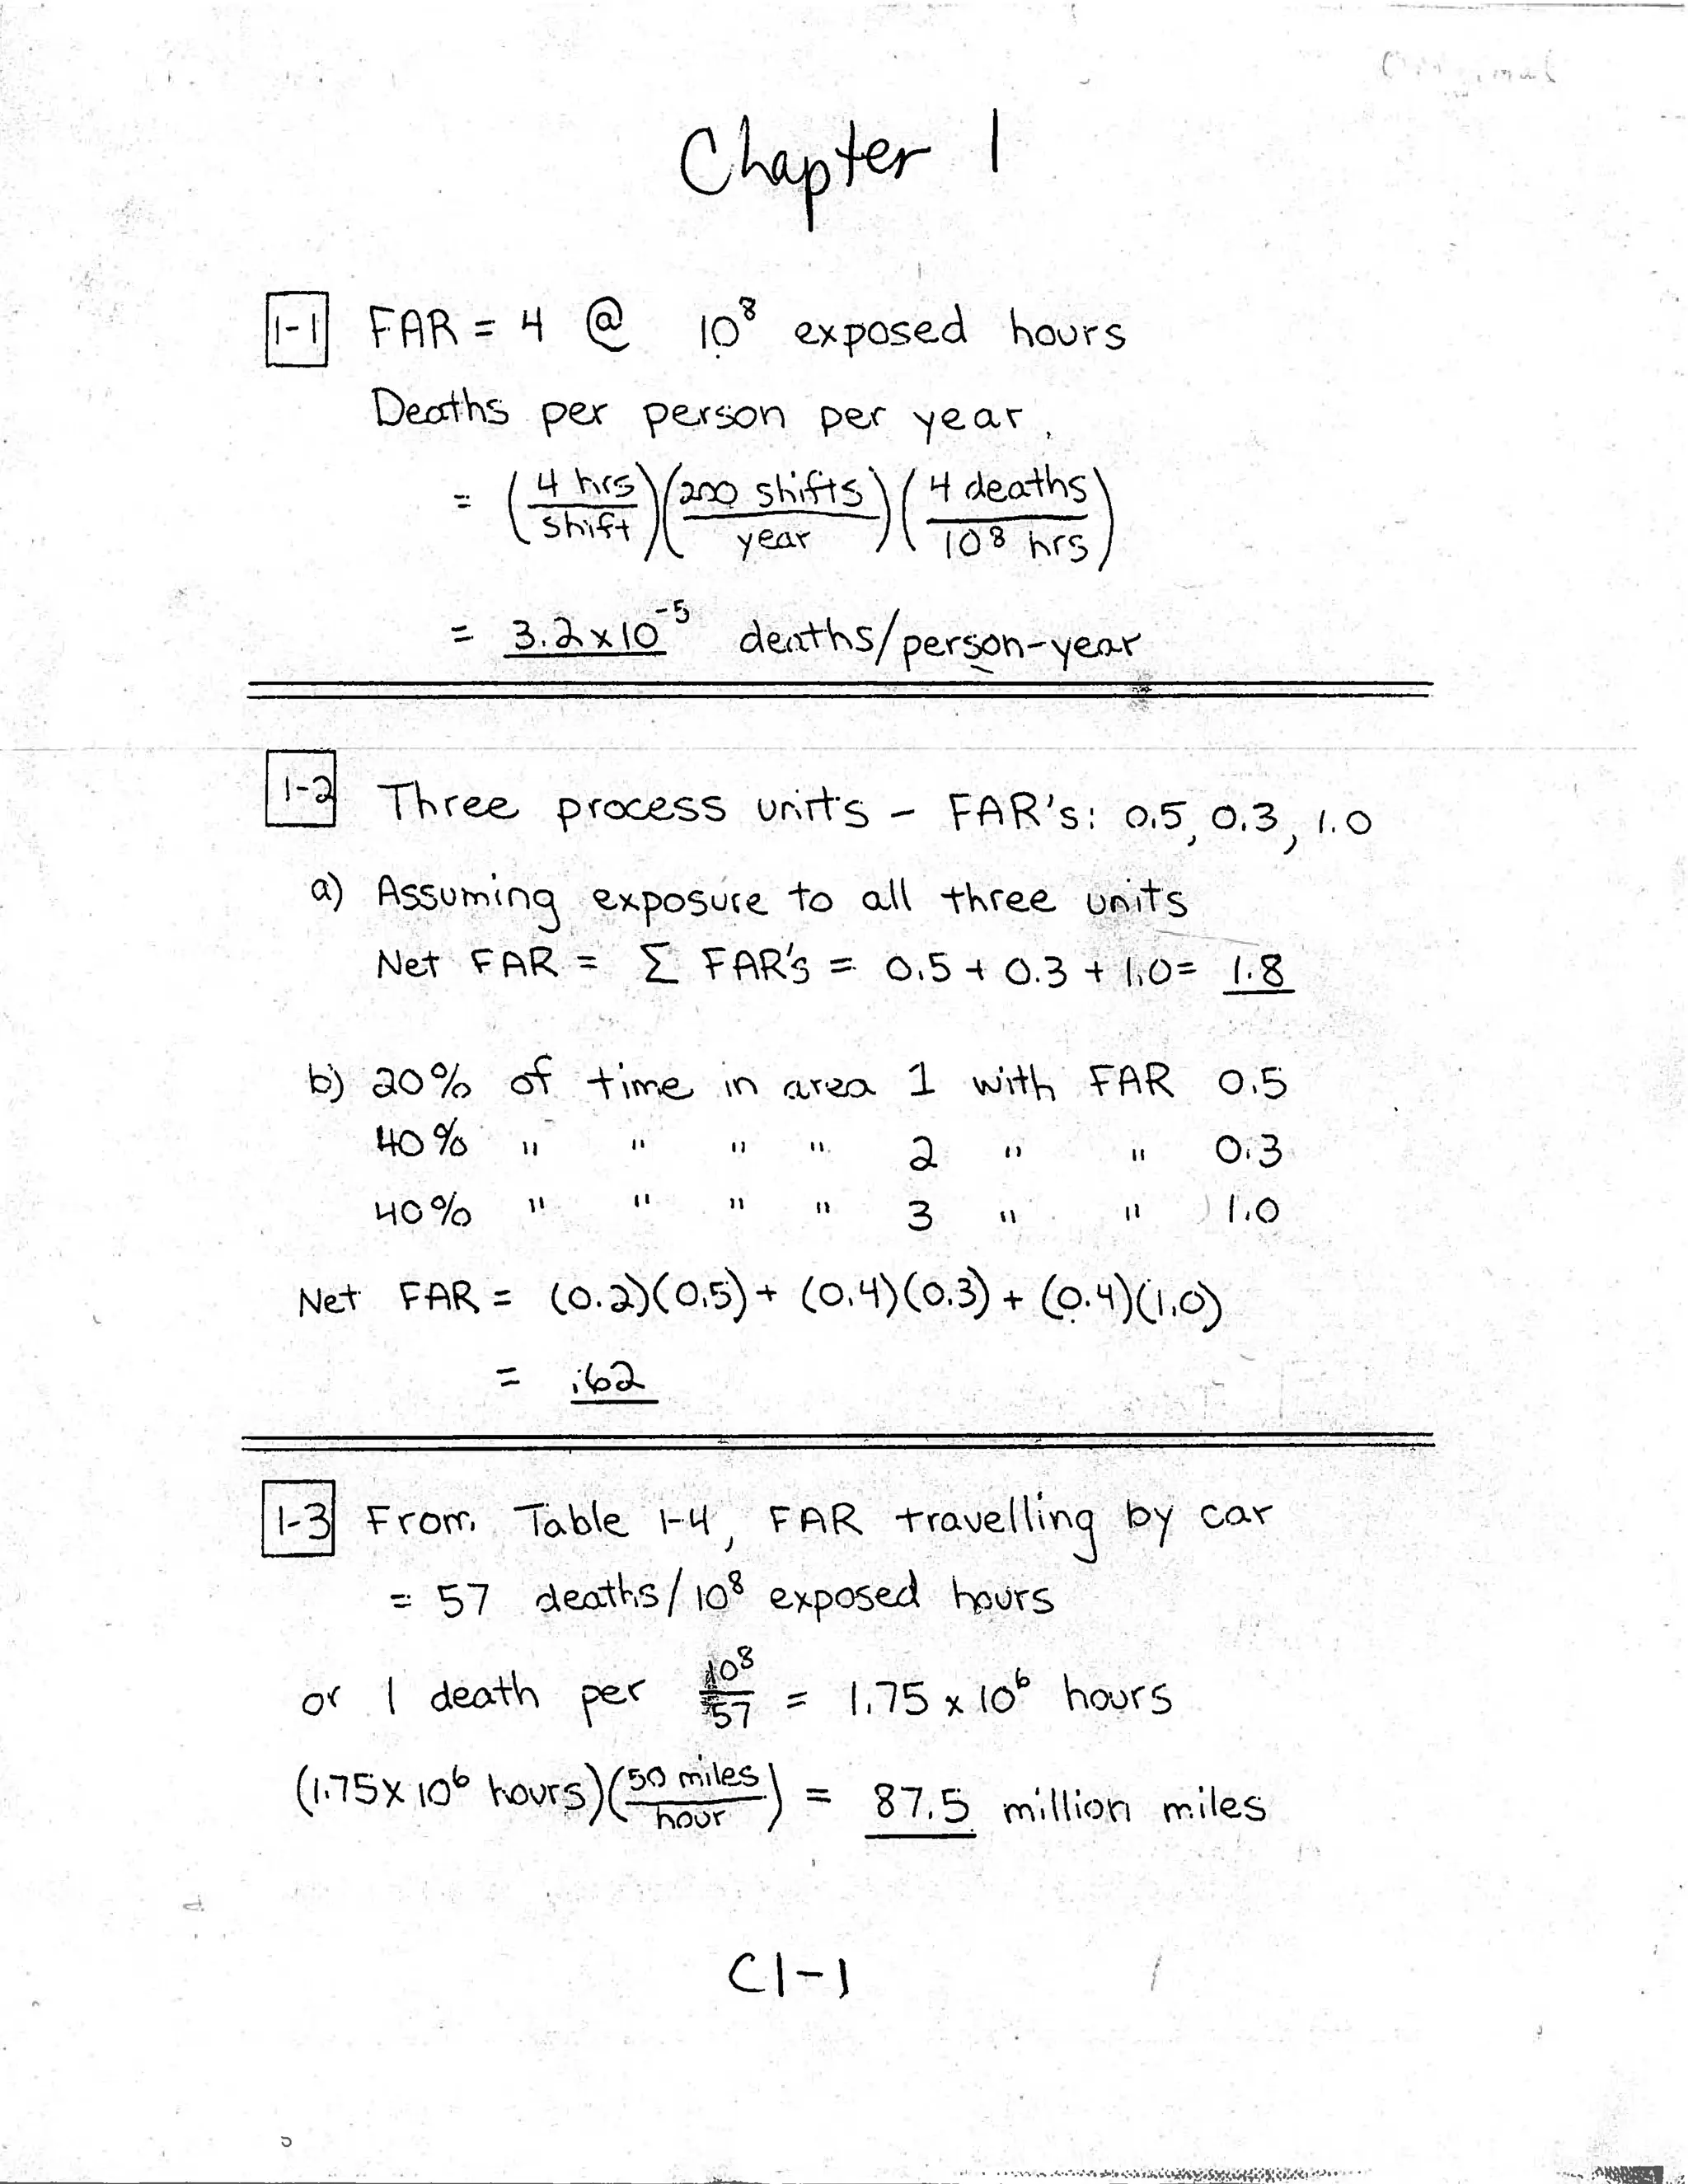 Chapter 1
1-1 FAR = 4 @ 10⁸ exposed hours
Deaths per person per year.
= (4 hrs/shift)(200 shifts/year)(4 deaths/10⁸ hrs)
= 3.2 x 10⁻⁵ deaths/person-year
1-2 Three process units - FAR's: 0.5, 0.3, 1.0
a) Assuming exposure to all three units
Net FAR = Σ FAR's = 0.5 + 0.3 + 1.0 = 1.8
b) 20% of time in area 1 with FAR 0.5
40% " " " " 2 " " 0.3
40% " " " " 3 " " 1.0
Net FAR = (0.2)(0.5) + (0.4)(0.3) + (0.4)(1.0)
= .62
1-3 From Table 1-4, FAR travelling by car
= 57 deaths/10⁸ exposed hours
or 1 death per 10⁸/57 = 1.75 x 10⁶ hours
(1.75 x 10⁶ hours)(50 miles/hour) = 87.5 million miles
C1-1